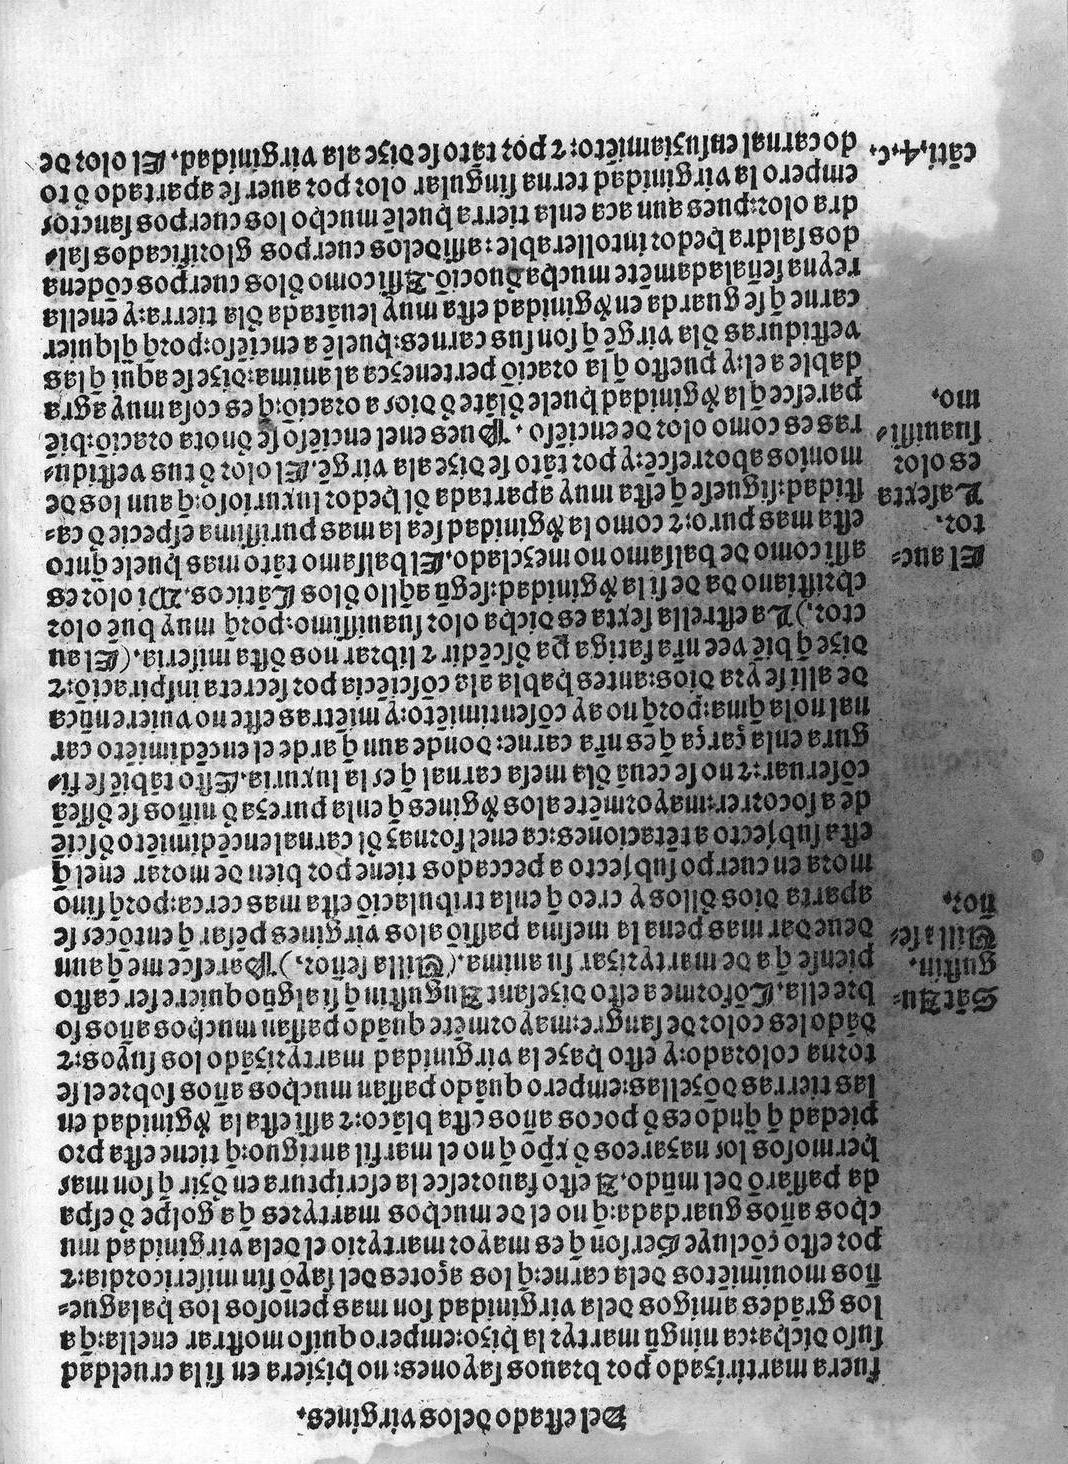 Del estado delos virgines.
fuera martirizado por brauos sayones: no hiziera en si la crueldad
suso dicha: ca ningũ martyr la hizo: empero quiso mostrar enella: q̃ a
los grãdes amigos dela virginidad son mas penosos los halague-
ños mouimiẽtos dela carne: q̃ los açotes del sayõ sin misericordia: ⁊
por esto cõcluye Gerson q̃ es mayor martyrio el dela virginidad mu
chos años guardada: q̃ no el de muchos martyres q̃ a golpe d̃ espa
da passarõ del mũdo. A esto fauoresce la escriptura en d̃zir q̃ son mas
hermosos los nazareos d̃ xp̃o q̃ no el marfil antiguo: q̃ tiene esta pro
piedad q̃ quãdo es d̃ pocos años esta blãco: ⁊ assi esta la v̓ginidad en
las tierras dõzellas: empero quãdo passan muchos años sobre el se
torna colorado: y esto haze la virginidad martyrizãdo los suyos: ⁊
dãdoles color de sangre: mayormẽte quãdo passan muchos años so
bre ella. Cõforme a esto dize sant Augustin q̃ si alguno quiere ser casto
piense q̃ a de martyrizar su anima. (Quilla señor.) Paresceme q̃ aun
deue dar mas pena la mesma passiõ alos virgines pẽsar q̃ entõces se
aparta dios d̃llos y creo q̃ enla tribulaciõ esta mas cerca: porq̃ sino
mora en cuerpo subjecto a peccados tiene por bien de morar enel q̃
esta subjecto a tẽtaciones: ca enel fornaz d̃l carnal encẽdimiẽto d̃sciẽ
de a socorrer: mayormẽte a los v̓gines q̃ enla pureza d̃ niños se d̃sseã
cõseruar: ⁊ no se ceuã d̃la mesa carnal q̃ es la luxuria. Esto tãbiẽ se fi-
gura enla çarça q̃ es nr̃a carne: donde aun q̃ arde el encẽdimiẽto car
nal no la q̃ma: porq̃ no ay cõsentimiẽto: y miẽtras este no viniere nũca
de alli se yra dios: antes habla ala cõsciẽcia por secreta inspiraciõ: ⁊
dize q̃ biẽ vee nr̃a fatiga p̃a d̃scẽdir ⁊ librar nos d̃sta miseria. (El au
ctor.) La estrella sexta es dicha olor suauissimo: porq̃ muy buẽ olor
christiano da de si la v̓ginidad: segũ aq̃llo d̃los Cãticos. Mi olor es
assi como de balsamo no mezclado. El balsamo tãto mas huele q̃nto
esta mas puro: ⁊ como la v̓ginidad sea la mas purissima especie d̃ ca-
stidad: siguese q̃ esta muy apartada d̃l hedor luxurioso: q̃ aun los de
monios aborrescẽ: y por tãto se dize ala virgẽ. El olor d̃ tus vestidu-
ras es como olor de enciẽso. Pues enel enciẽso se d̃nota oraciõ: biẽ
paresce q̃ la v̓ginidad huele d̃lãte d̃ dios a oraciõ: q̃ es cosa muy agra
dable a el: y puesto q̃ la oraciõ pertenezca al anima: dizese aqui q̃ las
vestiduras d̃la virgẽ q̃ son sus carnes: huelẽ a enciẽso: porq̃ q̃lquier
carne q̃ se guarda en v̓ginidad esta muy leuãtada d̃la tierra: y enella
reyna señaladamẽte mucha d̃uociõ. Assi como d̃los cuerpos cõdena
dos saldra hedor intollerable: assi delos cuerpos glorificados sal-
dra olor: pues aun aca enla tierra huelẽ mucho los cuerpos sanctos
empero la virginidad terna singular olor por auer se apartado d̃ to
do carnal ensuziamiẽto: ⁊ por tãto se dize ala virginidad. El olor de
Sãt Au-
gustin.
Quilla se-
ñor.
El auc-
tor.
La sexta
es olor
suauissi-
mo.
cãti. 4. c.